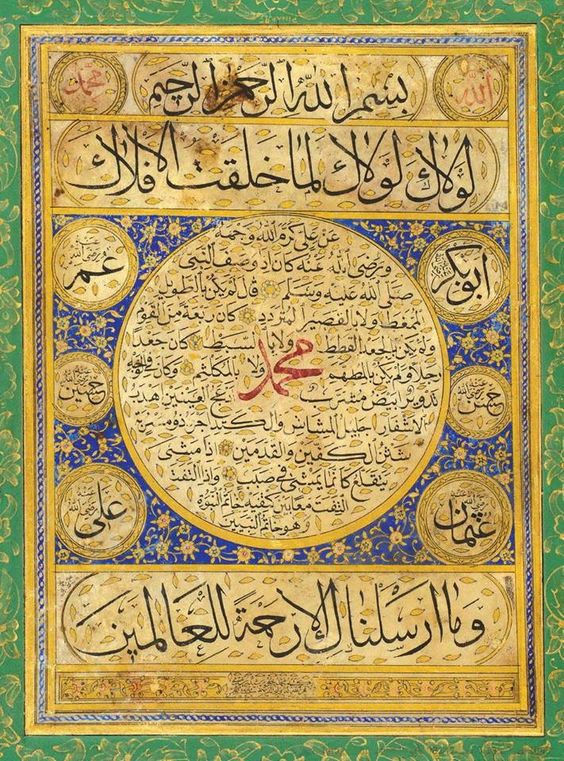 الله
بسم الله الرحمن الرحيم
محمد
لولاك لولاك لما خلقت الافلاك
عن علي كرم الله وجهه
ورضي الله عنه كان اذا وصف النبي
صلى الله عليه وسلم قال لم يكن بالطويل
الممغط ولا بالقصير المتردد كان ربعة من القوم
ولم يكن بالجعد القطط ولا بالسبط كان جعدا
رجلا ولم يكن بالمطهم ولا بالمكلثم وكان في وجهه
محمد
تدوير ابيض مشرب ادعج العينين اهدب
الاشفار جليل المشاش والكتد اجرد ذو
شثن الكفين والقدمين اذا مشى
يتقلع كانما يمشي في صبب واذا التفت
التفت معا بين كتفيه خاتم النبوة
وهو خاتم النبيين
ابو بكر رضي الله عنه
عمر رضي الله عنه
حسن رضي الله عنه
حسين رضي الله عنه
عثمان رضي الله عنه
علي رضي الله عنه
وما ارسلناك الا رحمة للعالمين